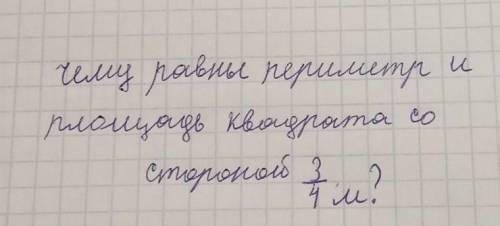 чему равны периметр и
площадь квадрата со
стороной 3/4 м?